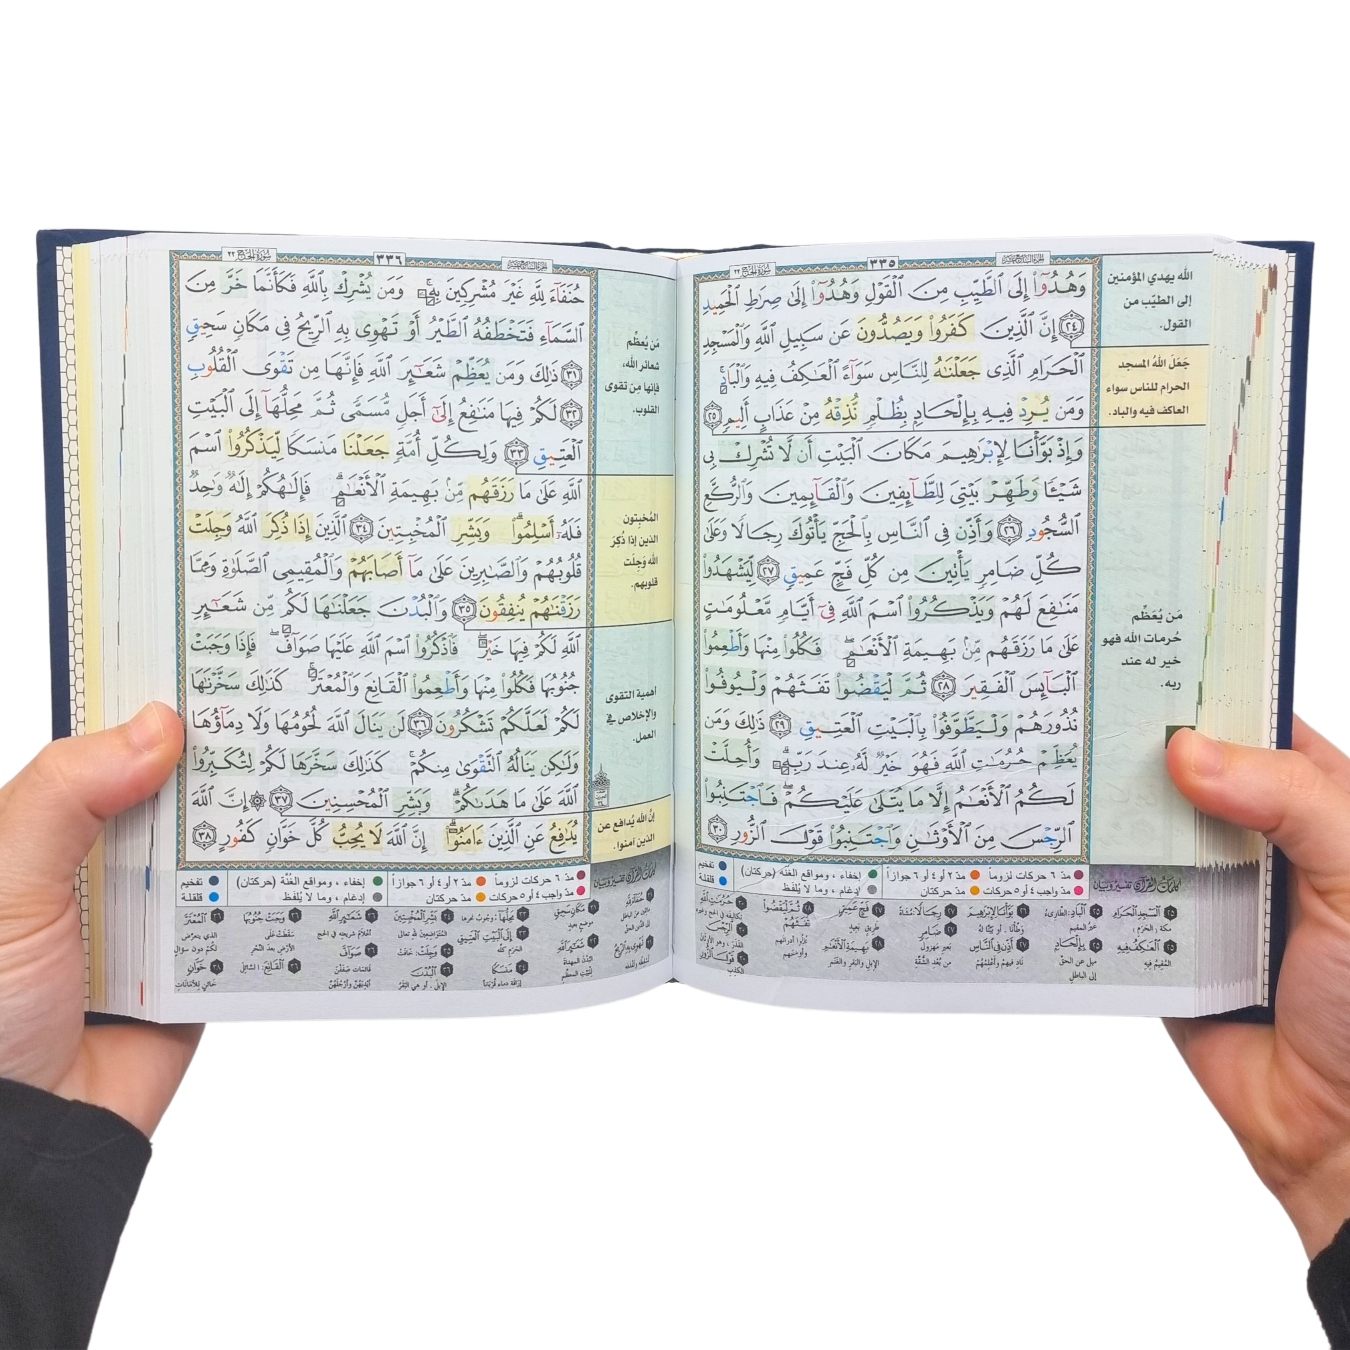 سورة الحج ٢٢
٣٣٥
الجزء السابع عشر
وَهُدُوٓاْ إِلَى ٱلطَّيِّبِ مِنَ ٱلۡقَوۡلِ وَهُدُوٓاْ إِلَىٰ صِرَٰطِ ٱلۡحَمِيدِ
٢٤ إِنَّ ٱلَّذِينَ كَفَرُواْ وَيَصُدُّونَ عَن سَبِيلِ ٱللَّهِ وَٱلۡمَسۡجِدِ
ٱلۡحَرَامِ ٱلَّذِي جَعَلۡنَٰهُ لِلنَّاسِ سَوَآءً ٱلۡعَٰكِفُ فِيهِ وَٱلۡبَادِۚ
وَمَن يُرِدۡ فِيهِ بِإِلۡحَادِۭ بِظُلۡمٖ نُّذِقۡهُ مِنۡ عَذَابٍ أَلِيمٖ ٢٥
وَإِذۡ بَوَّأۡنَا لِإِبۡرَٰهِيمَ مَكَانَ ٱلۡبَيۡتِ أَن لَّا تُشۡرِكۡ بِي
شَيۡـٔٗا وَطَهِّرۡ بَيۡتِيَ لِلطَّآئِفِينَ وَٱلۡقَآئِمِينَ وَٱلرُّكَّعِ
ٱلسُّجُودِ ٢٦ وَأَذِّن فِي ٱلنَّاسِ بِٱلۡحَجِّ يَأۡتُوكَ رِجَالٗا وَعَلَىٰ
كُلِّ ضَامِرٖ يَأۡتِينَ مِن كُلِّ فَجٍّ عَمِيقٖ ٢٧ لِّيَشۡهَدُواْ
مَنَٰفِعَ لَهُمۡ وَيَذۡكُرُواْ ٱسۡمَ ٱللَّهِ فِيٓ أَيَّامٖ مَّعۡلُومَٰتٍ
عَلَىٰ مَا رَزَقَهُم مِّنۢ بَهِيمَةِ ٱلۡأَنۡعَٰمِۖ فَكُلُواْ مِنۡهَا وَأَطۡعِمُواْ
ٱلۡبَآئِسَ ٱلۡفَقِيرَ ٢٨ ثُمَّ لۡيَقۡضُواْ تَفَثَهُمۡ وَلۡيُوفُواْ
نُذُورَهُمۡ وَلۡيَطَّوَّفُواْ بِٱلۡبَيۡتِ ٱلۡعَتِيقِ ٢٩ ذَٰلِكَۖ وَمَن
يُعَظِّمۡ حُرُمَٰتِ ٱللَّهِ فَهُوَ خَيۡرٞ لَّهُۥ عِندَ رَبِّهِۦۗ وَأُحِلَّتۡ
لَكُمُ ٱلۡأَنۡعَٰمُ إِلَّا مَا يُتۡلَىٰ عَلَيۡكُمۡۖ فَٱجۡتَنِبُواْ
ٱلرِّجۡسَ مِنَ ٱلۡأَوۡثَٰنِ وَٱجۡتَنِبُواْ قَوۡلَ ٱلزُّورِ ٣٠
الله يهدي المؤمنين
إلى الطيّب من
القول.
جَعَلَ اللهُ المسجد
الحرام للناس سواء
العاكف فيه والباد.
مَن يُعَظِّم
حُرمات الله فهو
خير له عند
ربه.
مدّ ٦ حركات لزوماً مدّ ٢ أو ٤ أو ٦ جوازاً إخفاء ، ومواقع الغُنَّة (حركتان) تفخيم
مدّ واجب ٤ أو ٥ حركات مدّ حركتان إدغام ، وما لا يُلفَظ قلقلة
سورة الحج ٢٢
٣٣٦
الجزء السابع عشر
حُنَفَآءَ لِلَّهِ غَيۡرَ مُشۡرِكِينَ بِهِۦۚ وَمَن يُشۡرِكۡ بِٱللَّهِ فَكَأَنَّمَا خَرَّ مِنَ
ٱلسَّمَآءِ فَتَخۡطَفُهُ ٱلطَّيۡرُ أَوۡ تَهۡوِي بِهِ ٱلرِّيحُ فِي مَكَانٖ سَحِيقٖ
٣١ ذَٰلِكَۖ وَمَن يُعَظِّمۡ شَعَٰٓئِرَ ٱللَّهِ فَإِنَّهَا مِن تَقۡوَى ٱلۡقُلُوبِ
٣٢ لَكُمۡ فِيهَا مَنَٰفِعُ إِلَىٰٓ أَجَلٖ مُّسَمّٗى ثُمَّ مَحِلُّهَآ إِلَى ٱلۡبَيۡتِ
ٱلۡعَتِيقِ ٣٣ وَلِكُلِّ أُمَّةٖ جَعَلۡنَا مَنسَكٗا لِّيَذۡكُرُواْ ٱسۡمَ
ٱللَّهِ عَلَىٰ مَا رَزَقَهُم مِّنۢ بَهِيمَةِ ٱلۡأَنۡعَٰمِۗ فَإِلَٰهُكُمۡ إِلَٰهٞ وَٰحِدٞ
فَلَهُۥٓ أَسۡلِمُواْۗ وَبَشِّرِ ٱلۡمُخۡبِتِينَ ٣٤ ٱلَّذِينَ إِذَا ذُكِرَ ٱللَّهُ وَجِلَتۡ
قُلُوبُهُمۡ وَٱلصَّٰبِرِينَ عَلَىٰ مَآ أَصَابَهُمۡ وَٱلۡمُقِيمِي ٱلصَّلَوٰةِ وَمِمَّا
رَزَقۡنَٰهُمۡ يُنفِقُونَ ٣٥ وَٱلۡبُدۡنَ جَعَلۡنَٰهَا لَكُم مِّن شَعَٰٓئِرِ
ٱللَّهِ لَكُمۡ فِيهَا خَيۡرٞۖ فَٱذۡكُرُواْ ٱسۡمَ ٱللَّهِ عَلَيۡهَا صَوَآفَّۖ فَإِذَا وَجَبَتۡ
جُنُوبُهَا فَكُلُواْ مِنۡهَا وَأَطۡعِمُواْ ٱلۡقَانِعَ وَٱلۡمُعۡتَرَّۚ كَذَٰلِكَ سَخَّرۡنَٰهَا
لَكُمۡ لَعَلَّكُمۡ تَشۡكُرُونَ ٣٦ لَن يَنَالَ ٱللَّهَ لُحُومُهَا وَلَا دِمَآؤُهَا
وَلَٰكِن يَنَالُهُ ٱلتَّقۡوَىٰ مِنكُمۡۚ كَذَٰلِكَ سَخَّرَهَا لَكُمۡ لِتُكَبِّرُواْ
ٱللَّهَ عَلَىٰ مَا هَدَىٰكُمۡۗ وَبَشِّرِ ٱلۡمُحۡسِنِينَ ٣٧ ۞ إِنَّ ٱللَّهَ
يُدَٰفِعُ عَنِ ٱلَّذِينَ ءَامَنُوٓاْۗ إِنَّ ٱللَّهَ لَا يُحِبُّ كُلَّ خَوَّانٖ كَفُورٍ ٣٨
مَن يُعظِّم
شعائر الله،
فإنها مِن تقوى
القلوب.
المُخبتون
الذين إذا ذُكِرَ
الله وَجِلَت
قلوبهم.
أهمية التقوى
والإخلاص في
العمل.
إنّ الله يُدافع عن
الذين آمنوا.
مدّ ٦ حركات لزوماً مدّ ٢ أو ٤ أو ٦ جوازاً إخفاء ، ومواقع الغُنَّة (حركتان) تفخيم
مدّ واجب ٤ أو ٥ حركات مدّ حركتان إدغام ، وما لا يُلفَظ قلقلة